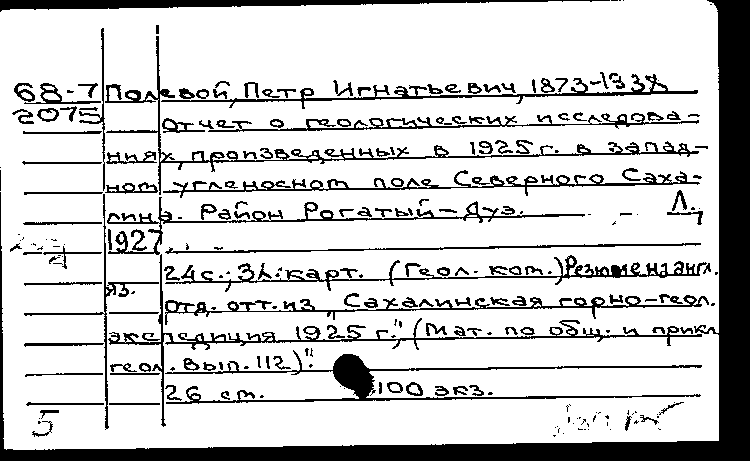 68-7 Полевой, Петр Игнатьевич, 1873-1938
2075 Отчет о геологических исследова-
ниях, произведенных в 1925 г. в запад-
ном угленосном поле Северного Саха-
лина. Район Рогатый-Дуэ. Л.,
1927.
24 с.; 3 л. карт. (Геол. ком.) Резюме на англ.
яз.
Отд. отт. из "Сахалинская горно-геол.
экспедиция 1925 г.", (Мат. по общ. и прикл
геол. Вып. 112)".
26 см. 100 экз.
5